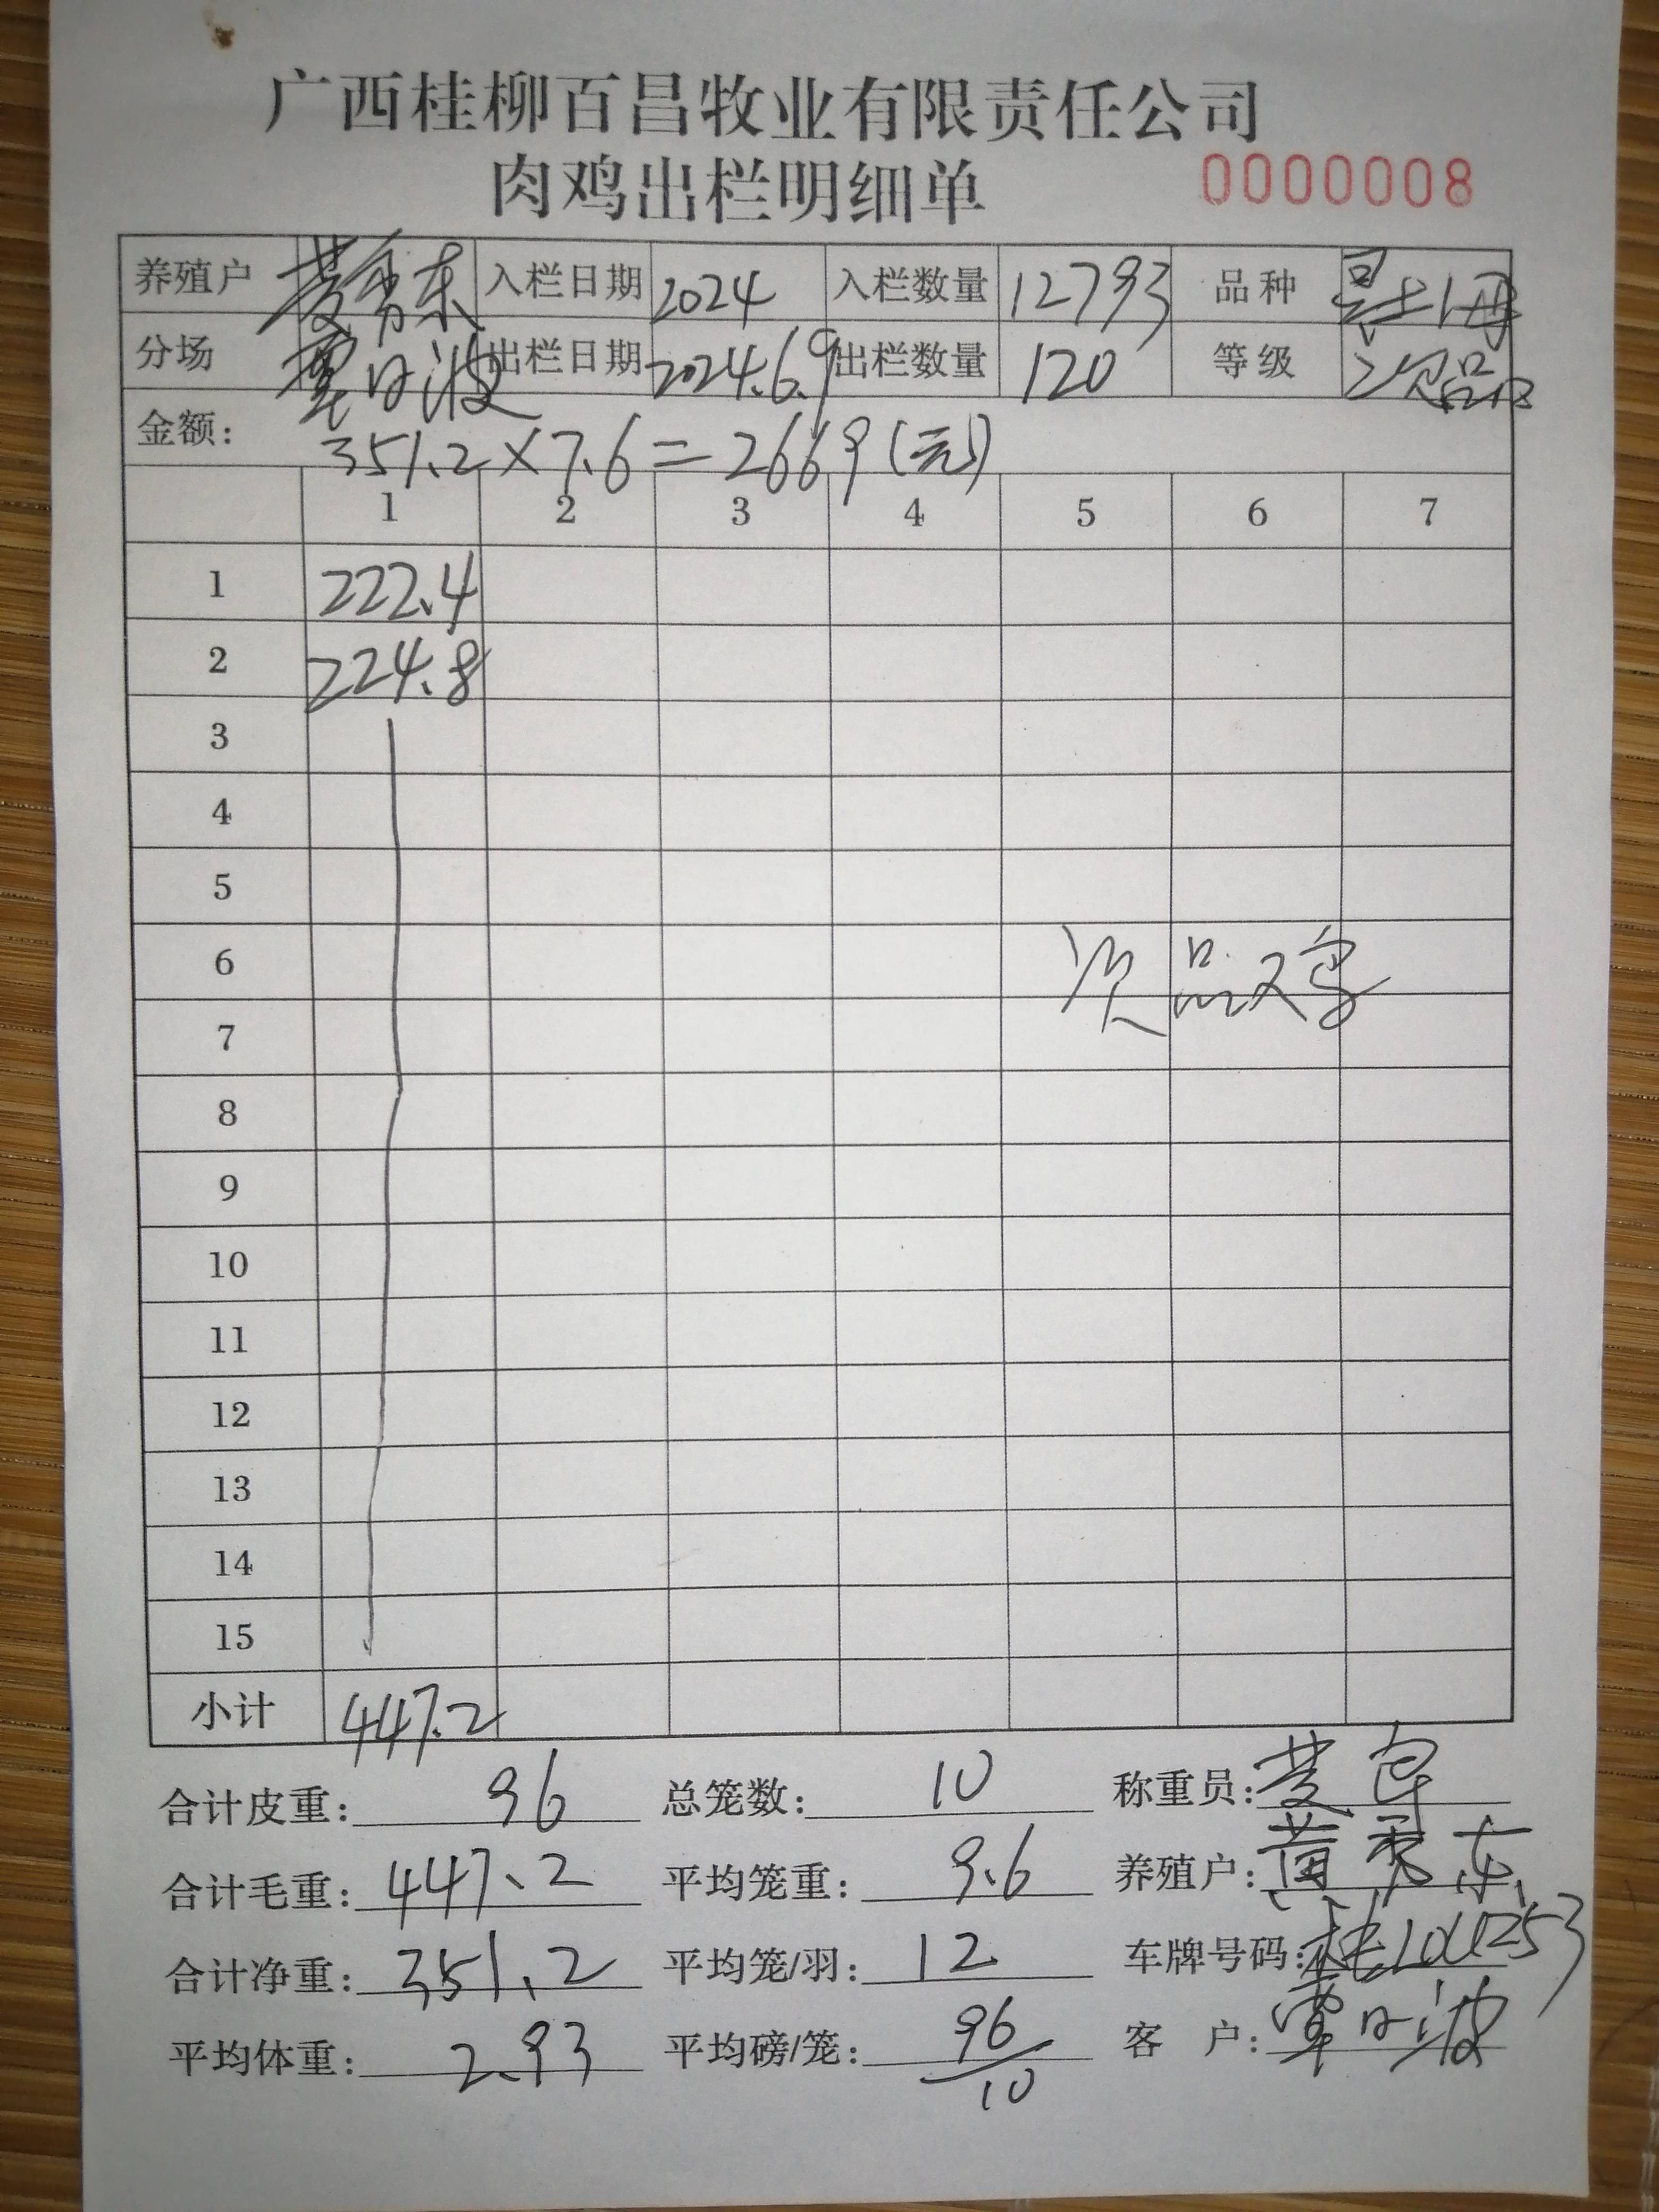 广西桂柳百昌牧业有限责任公司
肉鸡出栏明细单 0000008
养殖户 黄勇东 入栏日期 2024 入栏数量 12793 品种
分场 覃日波 出栏日期 2024.6.9 出栏数量 120 等级 次品
金额: 351.2×7.6=2669(元)
1 2 3 4 5 6 7
1 222.4
2 224.8
3
4
5
6 次品
7
8
9
10
11
12
13
14
15
小计 447.2
合计皮重: 96 总笼数: 10 称重员: 黄
合计毛重: 447.2 平均笼重: 9.6 养殖户: 黄勇东
合计净重: 351.2 平均笼/羽: 12 车牌号码:
平均体重: 2.93 平均磅/笼: 96/10 客 户: 覃日波